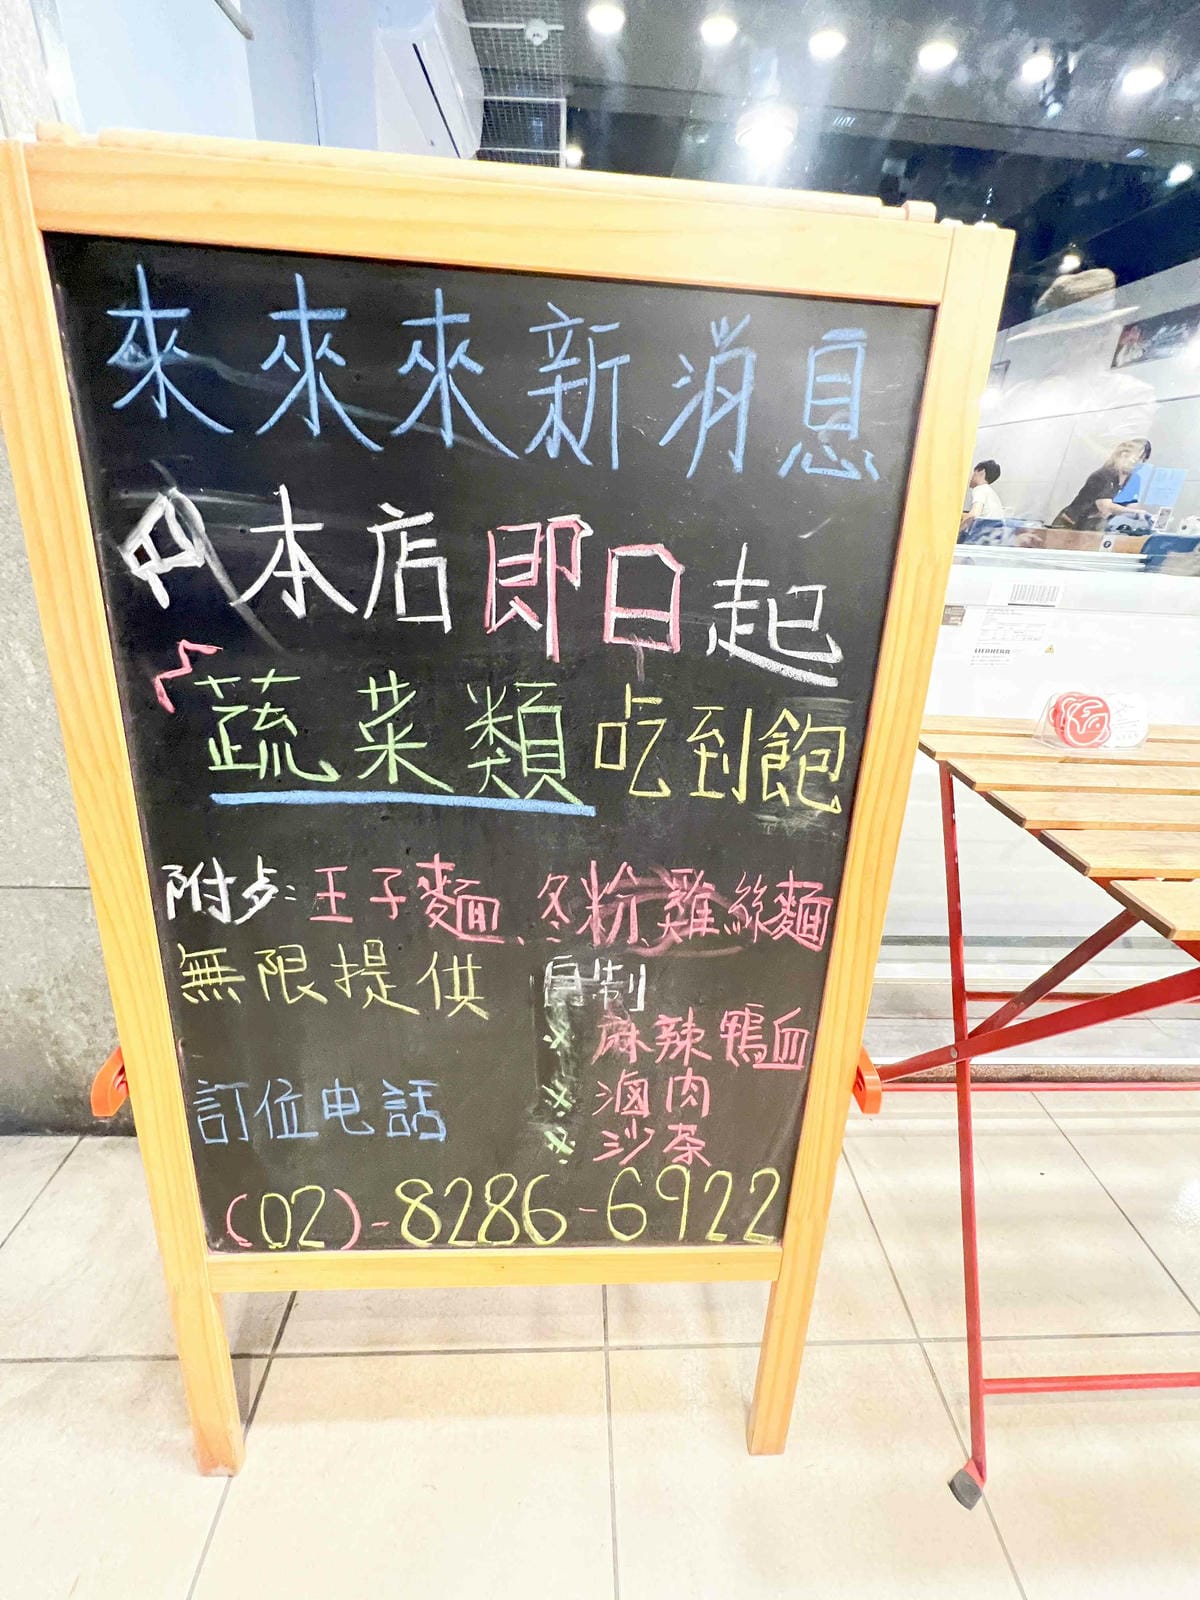 來來來新消息
本店即日起
蔬菜類吃到飽
附步：王子麵、冬粉、雞絲麵
無限提供
自制
麻辣鴨血
滷肉
沙茶
訂位电話
(02)-8286-6922
LIEBHERR